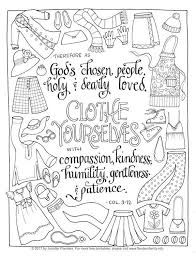 THEREFORE AS
God's chosen people,
holy & dearly loved,
CLOTHE
YOURSELVES
WITH
compassion, kindness,
humility, gentleness
& patience.
-COL. 3:12